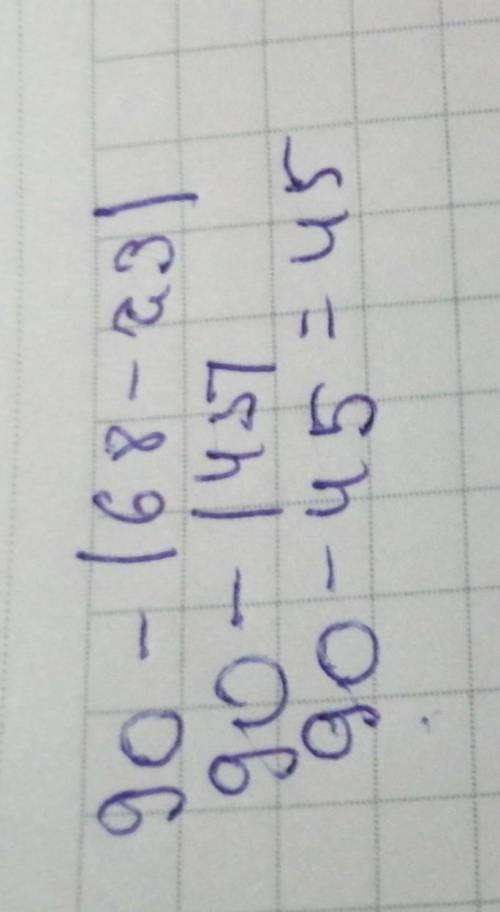 90 - |68 - 23|
90 - |45|
90 - 45 = 45